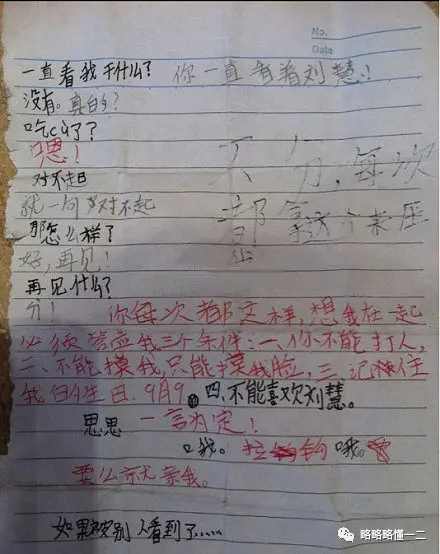 No.
Data
一直看我干什么？ 你一直看着刘慧！
没有。真的？
吃cù了？
嗯！
对不起
就一句对不起
那怎么样？
不分，每次都拿这个来压
好，再见！
再见什么？
分！ 你每次都这样，想我在一起
必须答应我三个条件：一、你不能打人，
二、不能摸我，只能摸我脸，三、记住
我的生日.9月9。四、不能喜欢刘慧。
思思 一言为定！
口我。拉钩 哦。
要么就亲我。
如果被别人看到了......
略略略懂一二